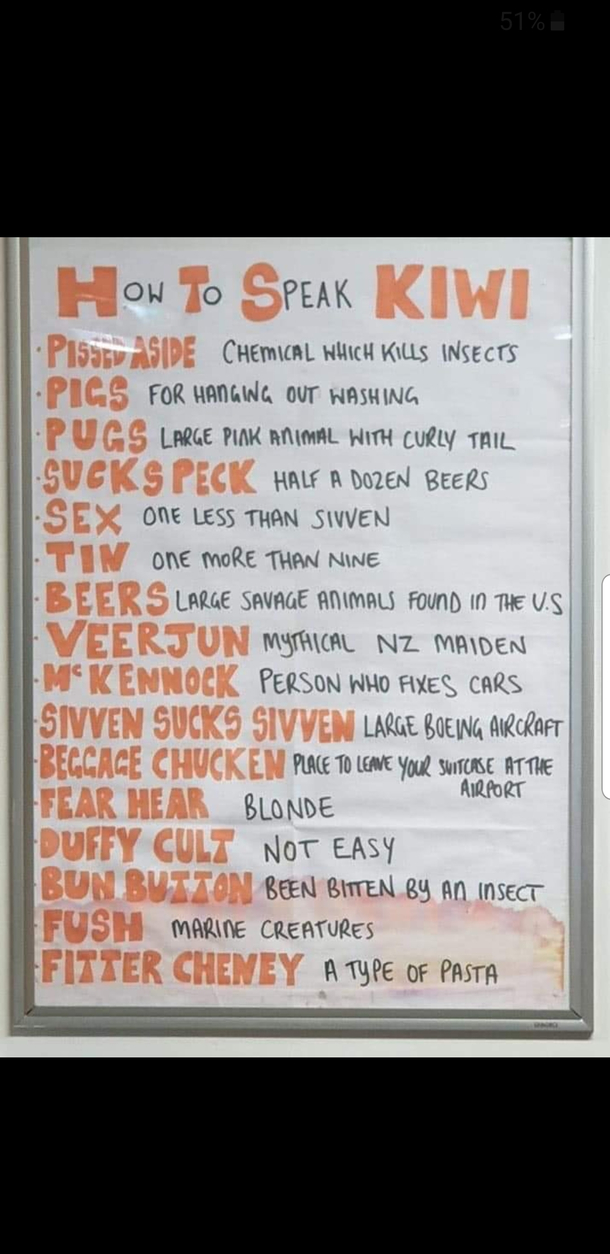 51%
HOW TO SPEAK KIWI
· PISSED ASIDE CHEMICAL WHICH KILLS INSECTS
· PIGS FOR HANGING OUT WASHING
· PUGS LARGE PINK ANIMAL WITH CURLY TAIL
· SUCKS PECK HALF A DOZEN BEERS
· SEX ONE LESS THAN SIVVEN
· TIN ONE MORE THAN NINE
· BEERS LARGE SAVAGE ANIMALS FOUND IN THE U.S
· VEERJUN MYTHICAL NZ MAIDEN
· McKENNOCK PERSON WHO FIXES CARS
· SIVVEN SUCKS SIVVEN LARGE BOEING AIRCRAFT
· BEGGAGE CHUCKEN PLACE TO LEAVE YOUR SUITCASE AT THE
AIRPORT
· FEAR HEAR BLONDE
· DUFFY CULT NOT EASY
· BUN BUTTON BEEN BITTEN BY AN INSECT
· FUSH MARINE CREATURES
· FITTER CHENEY A TYPE OF PASTA